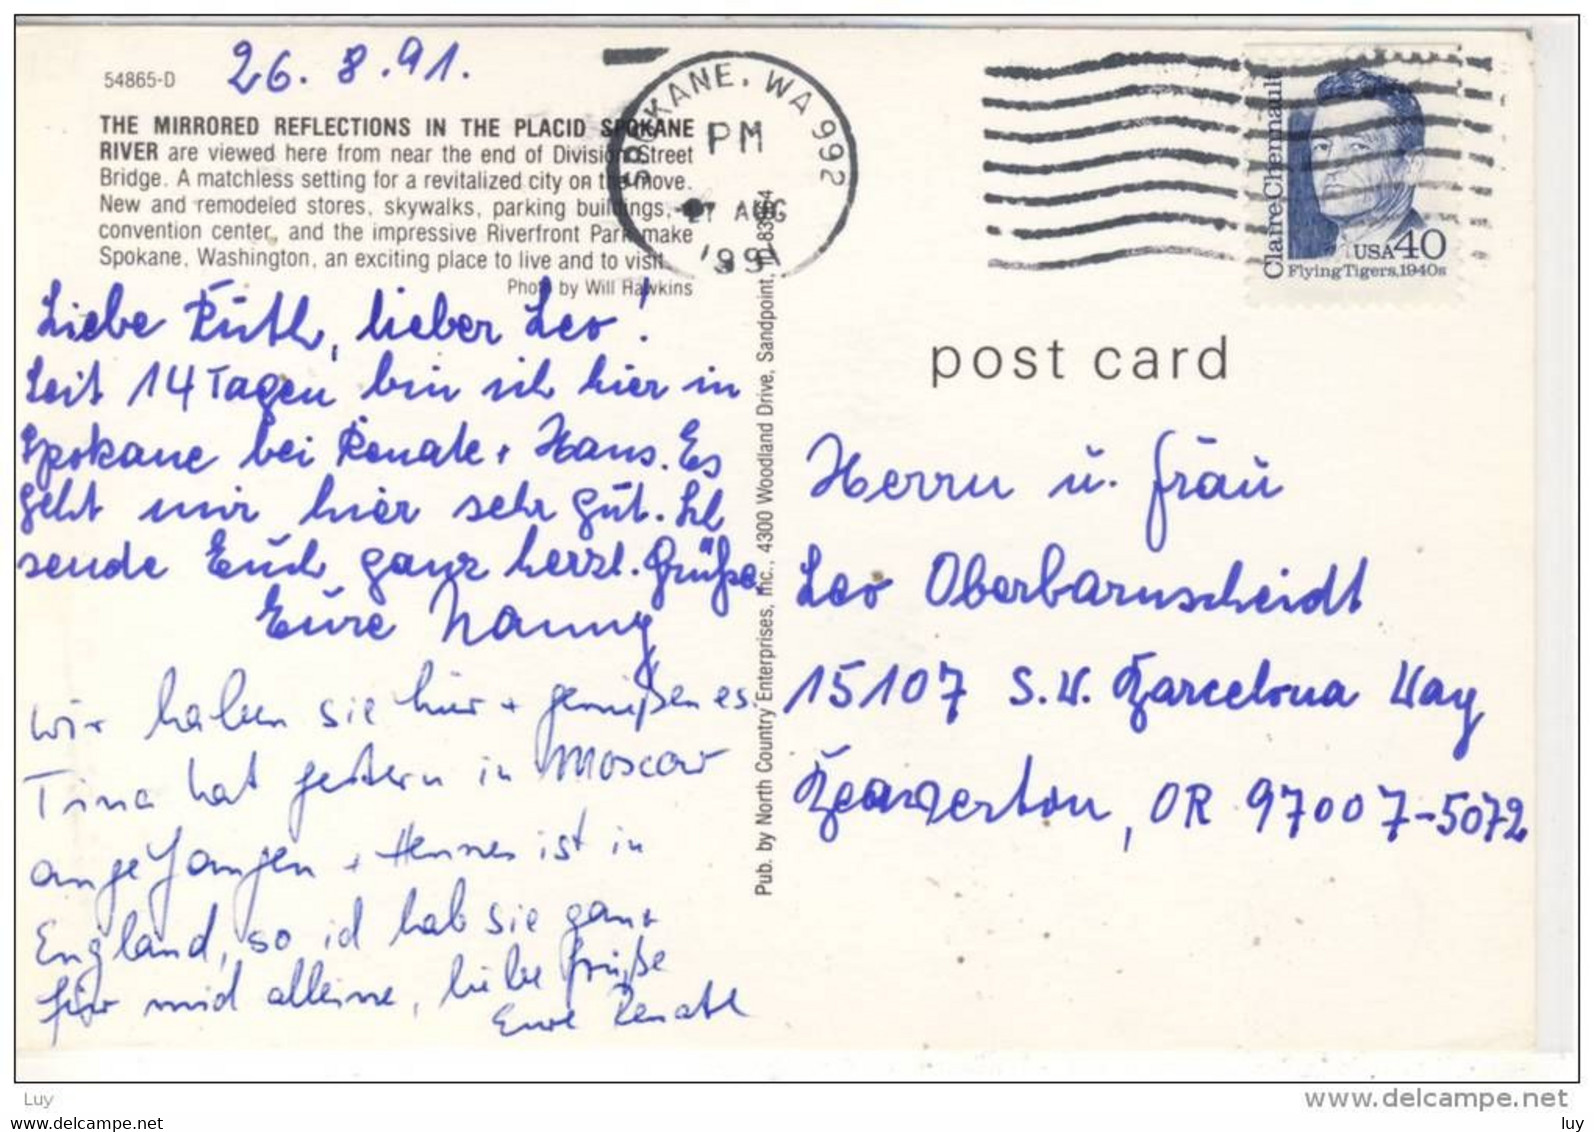 54865-D
26. 8. 91.
THE MIRRORED REFLECTIONS IN THE PLACID SPOKANE
RIVER are viewed here from near the end of Division Street
Bridge. A matchless setting for a revitalized city on the move.
New and remodeled stores, skywalks, parking buildings,
convention center, and the impressive Riverfront Park make
Spokane, Washington, an exciting place to live and to visit.
Photo by Will Hawkins
SPOKANE, WA 992
PM
27 AUG
1991
Claire Chennault
USA 40
Flying Tigers, 1940s
Liebe Ruth, lieber Leo!
Seit 14 Tagen bin ich hier in
Spokane bei Renate + Hans. Es
geht mir hier sehr gut. Ich
sende Euch ganz herzl. Grüße
Eure Nanny
Wir haben sie hier + genießen es.
Tina hat gestern in Moscow
angefangen + Hannes ist in
England, so ich hab sie ganz
für mich alleine, liebe Grüße
Eure Renate
Pub. by North Country Enterprises, Inc., 4300 Woodland Drive, Sandpoint,
post card
Herrn u. Frau
Leo Oberbarnscheidt
15107 S.W. Barcelona Way
Beaverton, OR 97007-5072
Luy
www.delcampe.net
Luy
luy